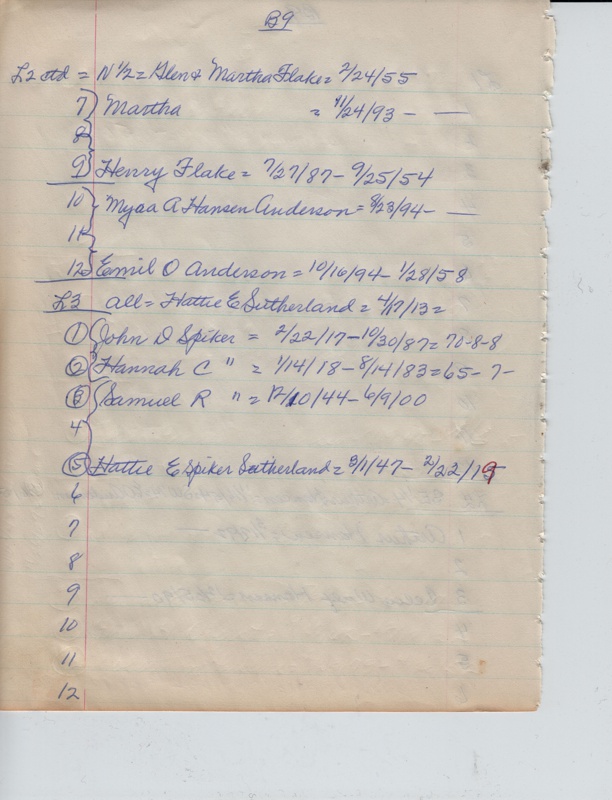 B9
L2 ctd = N 1/2 = Glen & Martha Flake = 2/24/55
7 Martha = 11/24/93 - —
8
9 Henry Flake = 7/27/87 - 9/25/54
10 Myra A Hansen Anderson = 8/23/94 - —
11
12 Emil O Anderson = 10/16/94 - 1/28/58
L3 all = Hattie E Sutherland = 4/17/13 =
1 John D Spiker = 2/22/17 - 10/30/87 = 70-8-8
2 Hannah C " = 1/14/18 - 8/14/83 = 65-7-
3 Samuel R " = 12/10/44 - 6/9/00
4
5 Hattie E Spiker Sutherland = 3/1/47 - 2/22/19
6
7
8
9
10
11
12